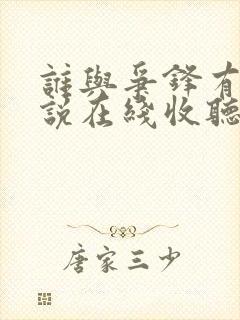 誰與爭鋒有
說在綫收聽
唐家三少